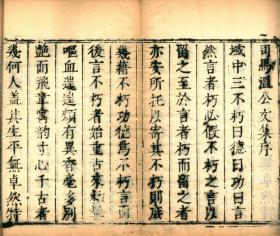 司馬溫公文集序
域中三不朽曰德曰功曰言
然言者不朽必假不朽之言以
留之至於言者不朽而留之者
亦安所托以寄其不朽則庶
幾藉不朽功德爲不朽言而
後言不朽者始重古來髦
嘔血類有異香毫多別
艷而飛章寓韵寸心千古者
幾何人蓋其生平無卓然特